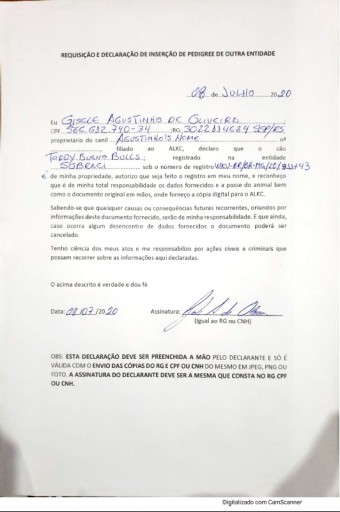 REQUISIÇÃO E DECLARAÇÃO DE INSERÇÃO DE PEDIGREE DE OUTRA ENTIDADE
08 de JULHO 2020
Eu GISELE AGUSTINHO DE OLIVEIRA
CPF ;RG SSP/RS
proprietário do canil AGUSTINHO'S HOME nº
filiado ao ALKC, declaro que o cão
TODDY BUENO BULLS; registrado na entidade
SOBRACI sob o número de registro
é de minha propriedade, autorizo que seja feito o registro em meu nome, e reconheço
que é de minha total responsabilidade os dados fornecidos e a posse do animal bem
como o documento original em mãos, onde forneço a cópia digital para o ALKC.
Sabendo-se que quaisquer causas ou consequências futuras recorrentes, oriundos por
informações deste documento fornecido, serão de minha responsabilidade. E que ainda,
caso ocorra algum desencontro de dados fornecidos o documento poderá ser
cancelado.
Tenho ciência dos meus atos e me responsabilizo por ações cíveis e criminais que
possam recorrer sobre as informações aqui declaradas.
O acima descrito é verdade e dou fé
Data: 08/07/2020 Assinatura:
(Igual ao RG ou CNH)
OBS: ESTA DECLARAÇÃO DEVE SER PREENCHIDA A MÃO PELO DECLARANTE E SÓ É
VÁLIDA COM O ENVIO DAS CÓPIAS DO RG E CPF OU CNH DO MESMO EM JPEG, PNG OU
FOTO. A ASSINATURA DO DECLARANTE DEVE SER A MESMA QUE CONSTA NO RG CPF
OU CNH.
Digitalizado com CamScanner